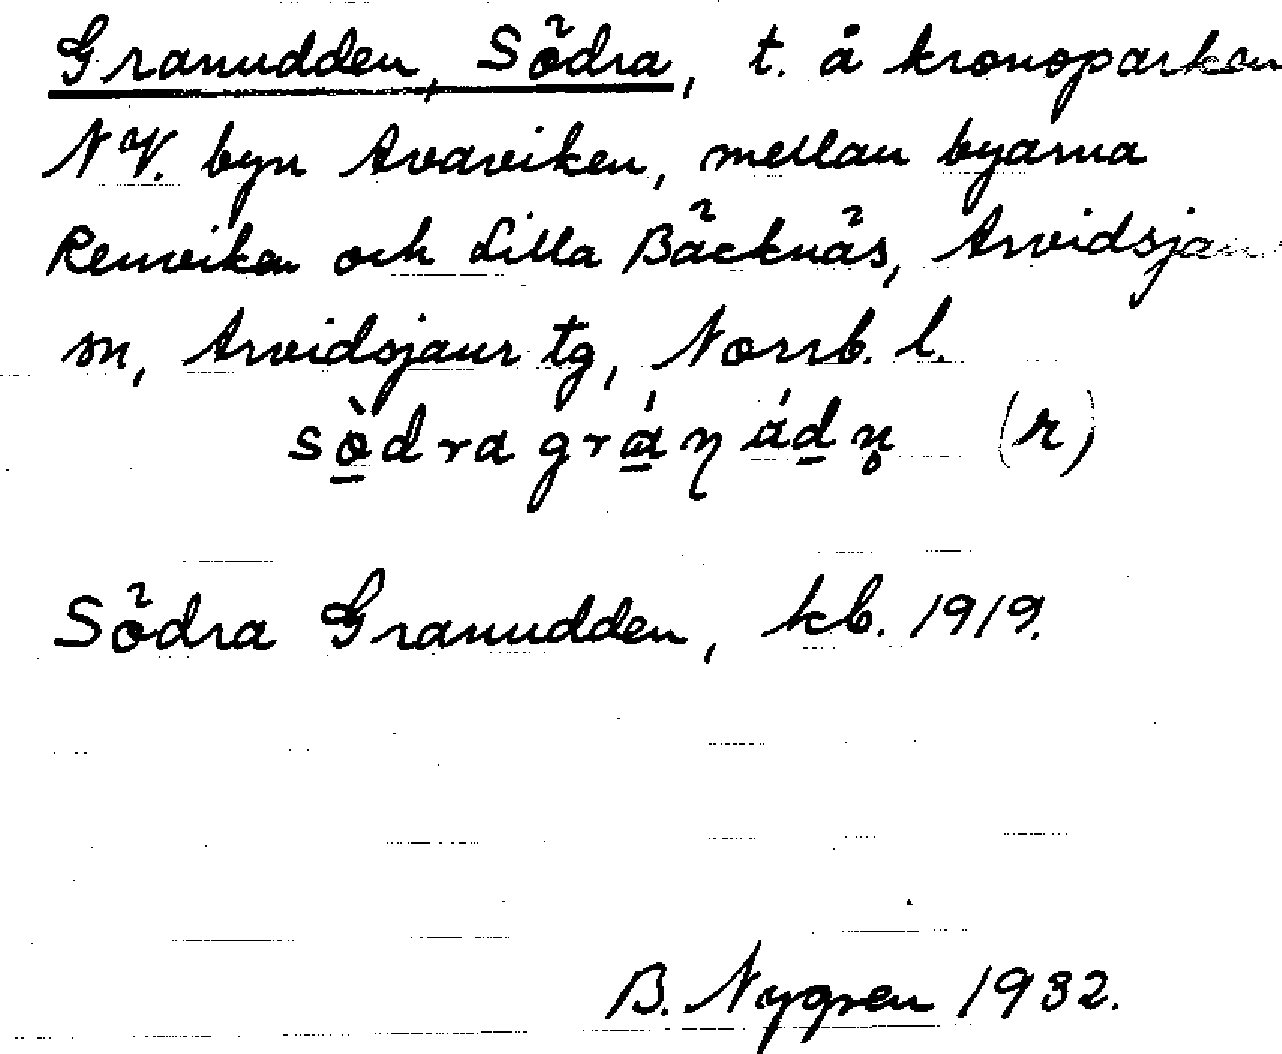 Granudden, Södra, t. å kronoparken
NV. byn Avaviken, mellan byarna
Renviken och Lilla Bäcknäs, Arvidsjaur
sn, Arvidsjaur tg, Norrb. l.
(r)
Södra Granudden, kb. 1919.
B. Nygren 1932.